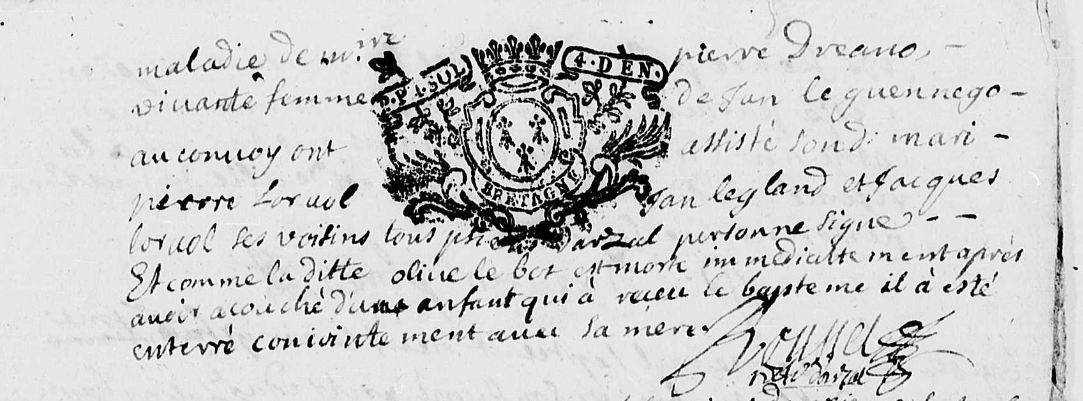 maladie de mire pierre Dreano -
P. 4. SOL 4. DEN.
vivante femme de Jan le guennego -
au convoy ont assisté son d: mari -
pierre Lorcol Jan legland et Jacques
BRETAGNE
lorcol ses voisins tous darzal personne signe - -
Et comme la ditte olive le bot est morte immediattement après
avoir acouché d'un enfant qui à receu le bapteme il à esté
enterré conjointement avec sa mere
r d'arzal